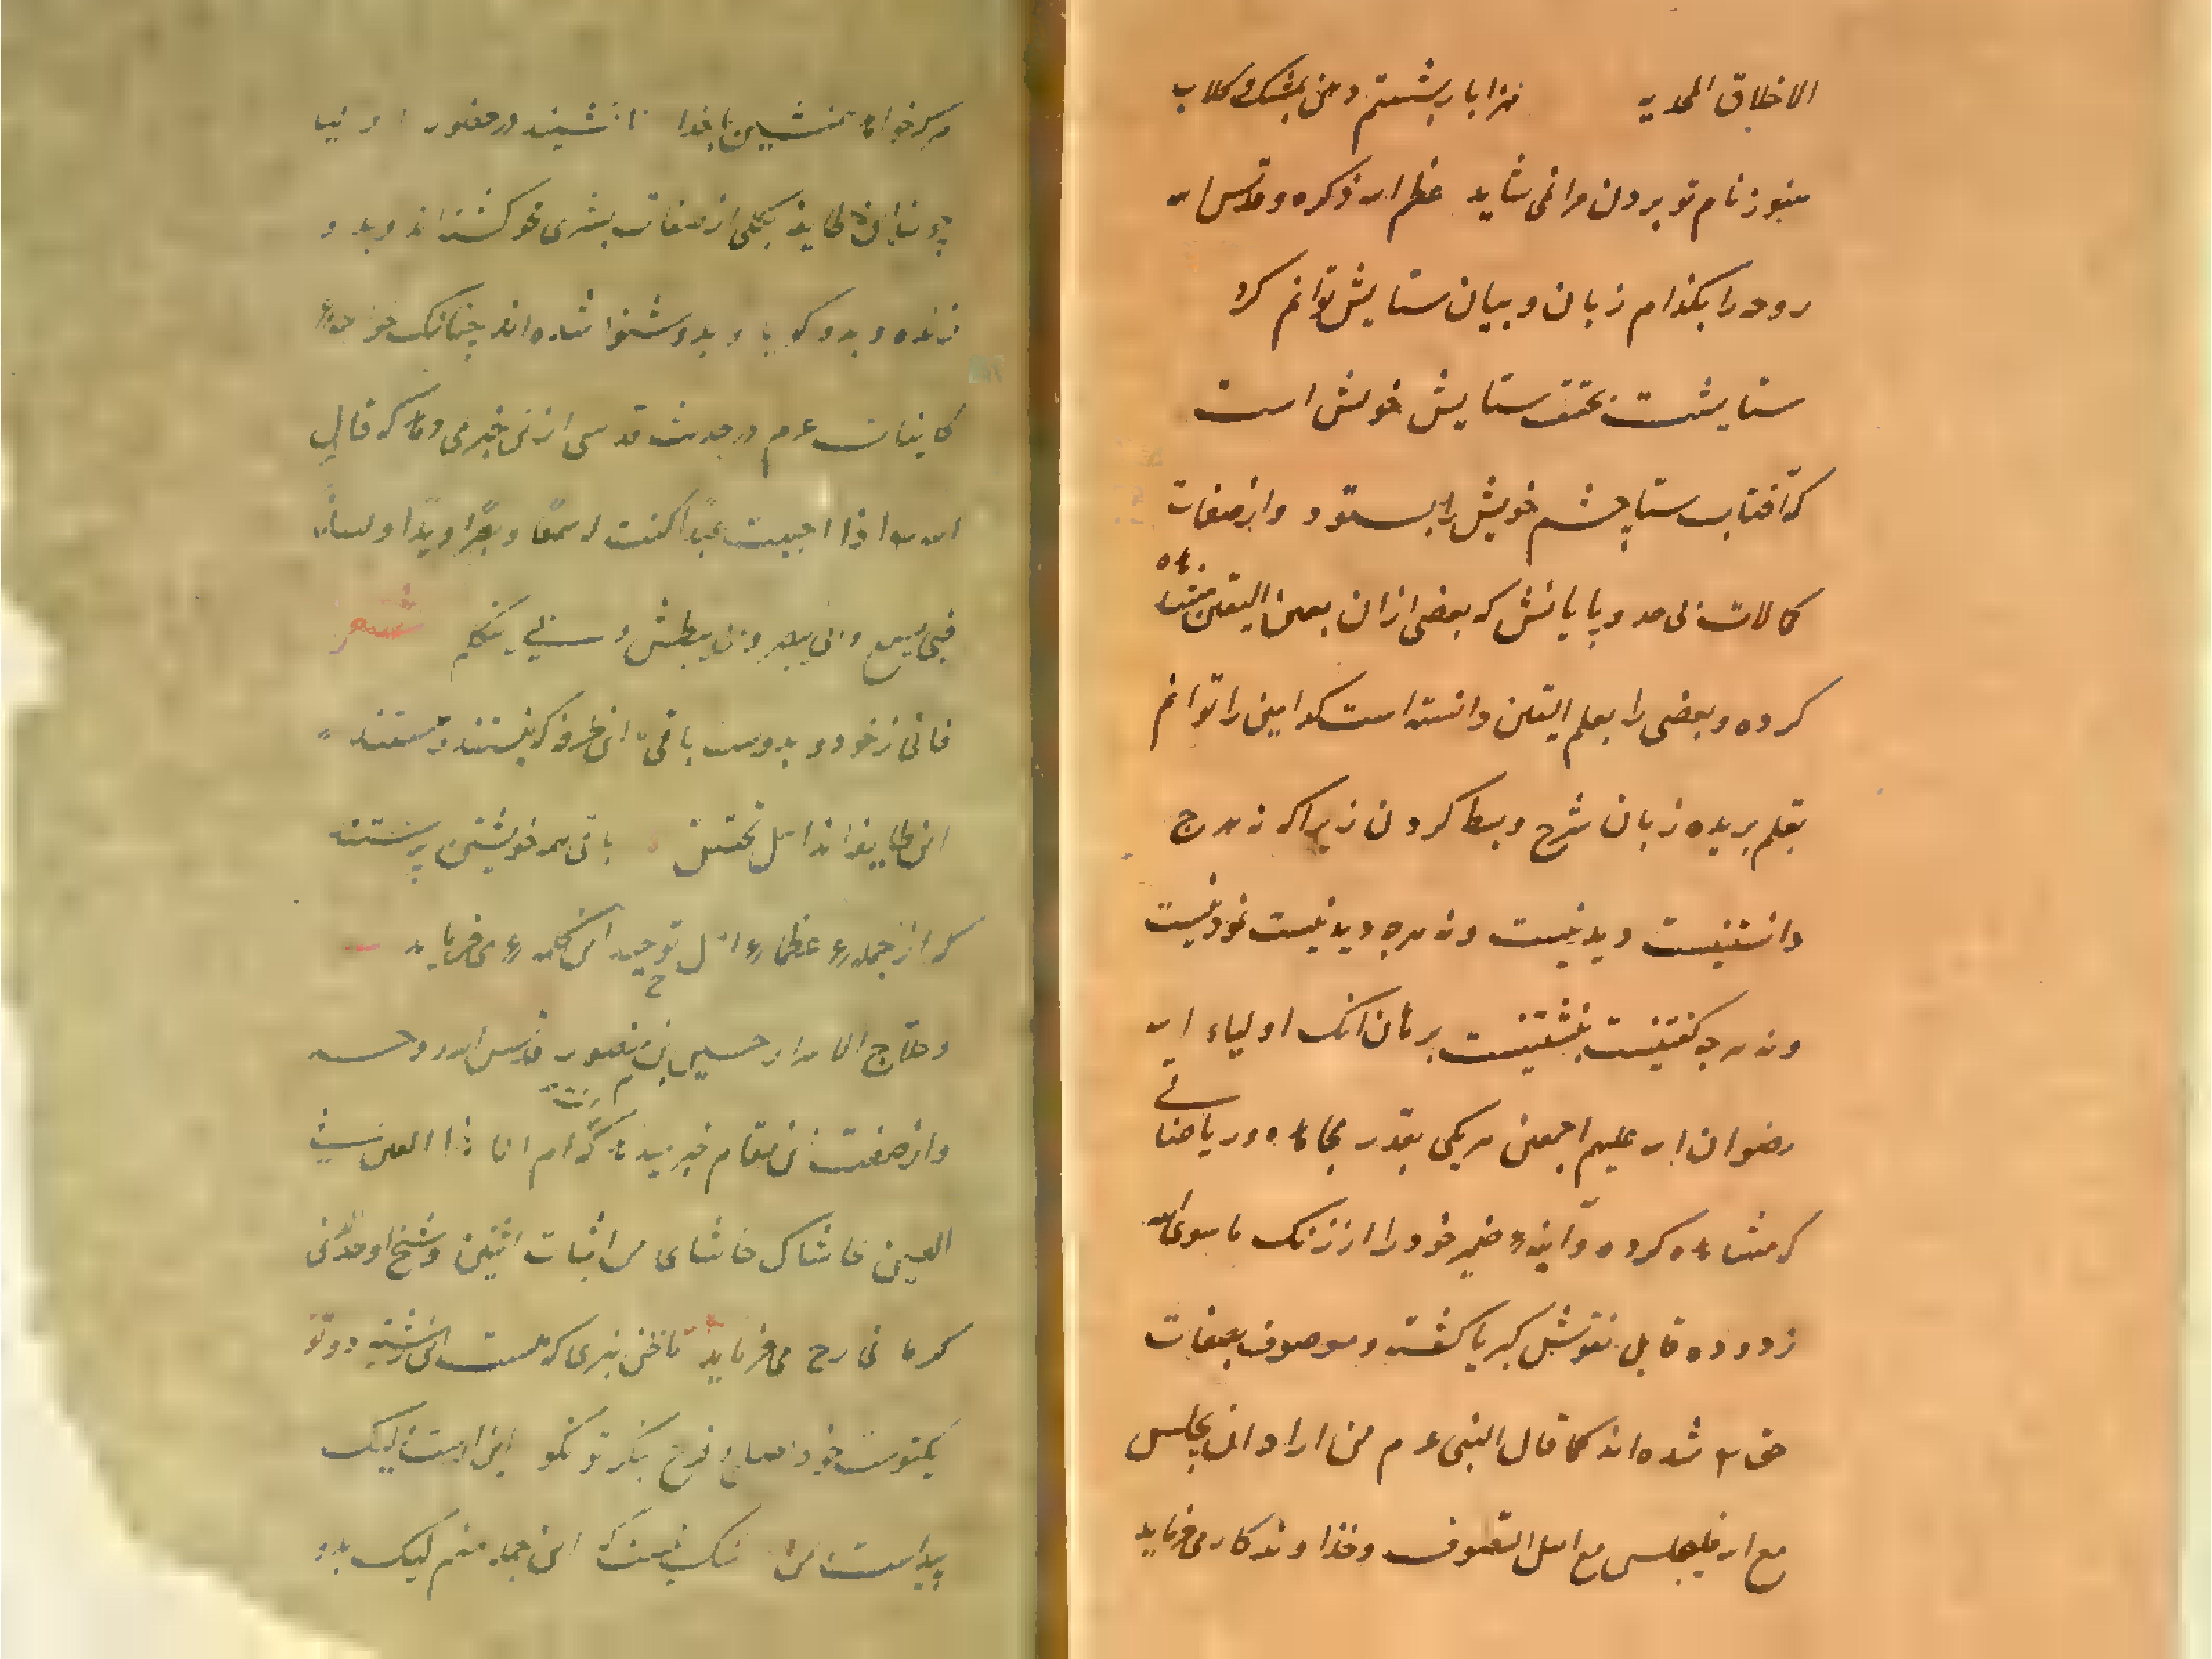 الاخلاق المحمدیه هزار بار بشستم دهن بمشک و کلاب
هنوز نام تو بردن مرا نمی شاید عظم الله ذکره و قدس الله
روحه را بکذام زبان و بیان ستایش توانم کرد
ستایشت بحقیقت ستایش خویش است
که آفتاب ستا چشم خویش را بستود و از صفات
کمالات بی حد و پایانش که بعضی ازان بعین الیقین مشاهده
کرده و بعضی را بعلم الیقین دانسته است کدامین را توانم
بقلم بریده زبان شرح و بسط کردن زیرا که نه هرچ
دانستنیست دیدنیست و نه هرچه دیدنیست نمودنیست
و نه هرچه کفتنیست نبشتنیست برهان انک اولیاء الله
رضوان الله علیهم اجمعین هریکی بقدر مجاهده و ریاضتی
که مشاهده کرده و آینهٔ ضمیر خود را از زنک ماسوی الله
زدوده قابل نقوش کبریا کشته و موصوف بصفات
حق تعالی شده اند کما قال النبی عم من اراد ان یجلس
مع الله فلیجلس مع اهل التصوف و خذاوندکار می فرماید
هرکه خواهد همنشینی با خدا تا نشیند در حضور اولیا
چون این طایفه بکلی از صفات بشری محو کشته اند و بدو
زنده و بدو کویا و بدو شنوا شده اند چنانک خواجهٔ
کاینات عم در حدیث قدسی ازین خبر می دهد که قال
الله تعالی اذا احببت عبدًا کنت له سمعًا و بصرًا و یدًا و لسانًا
فبی یسمع و بی یبصر و بی یبطش و بی یتکلم شعر
فانی ز خود و بدوست باقی این طرفه که نیستند و هستند
این طایفه اند اهل تحقیق باقی همه خویشتن پرستند
که از جملهٔ عظماء اهل توحید این کلمه را می فرماید
و حلاج الاسرار حسین بن منصور قدس الله روحه
و از صفت این مقام خبر میدهد که ام انا هذا العین فی
العین حاشاک حاشای من اثبات اثنین و شیخ اوحد الدین
کرمانی رح می فرماید تا ظن نبری که هست این رشته دوتو
یکتوست خود اصل و فرع بنکر تو نکو این اوست لیک
پیداست بمن شک نیست که این جمله منم لیک بدو